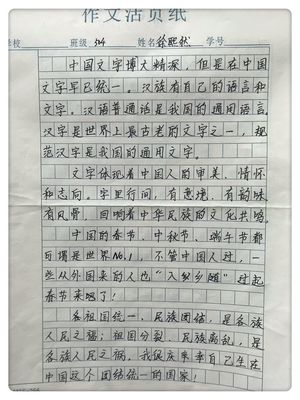 作文活页纸
学校 班级 姓名 徐熙然 学号
中国文字博大精深，但是在中国
文字早已统一。汉族有自己的语言和
文字。汉语普通话是我国的通用语言，
汉字是世界上最古老的文字之一，规
范汉字是我国的通用文字。
文字体现着中国人的审美、情怀
和志向。字里行间，有意境、有韵味、
有风骨，回响着中华民族的文化共鸣。
中国的春节、中秋节、端午节都
可谓是世界No.1，不管中国人过，一
些从外国来的人也“入乡随”过起
春节来啦！
各祖国统一、民族团结，是各族
人民之福；祖国分裂、民族离乱，是
各族人民之祸。我很庆幸自己生在
中国这个团结统一的国家！